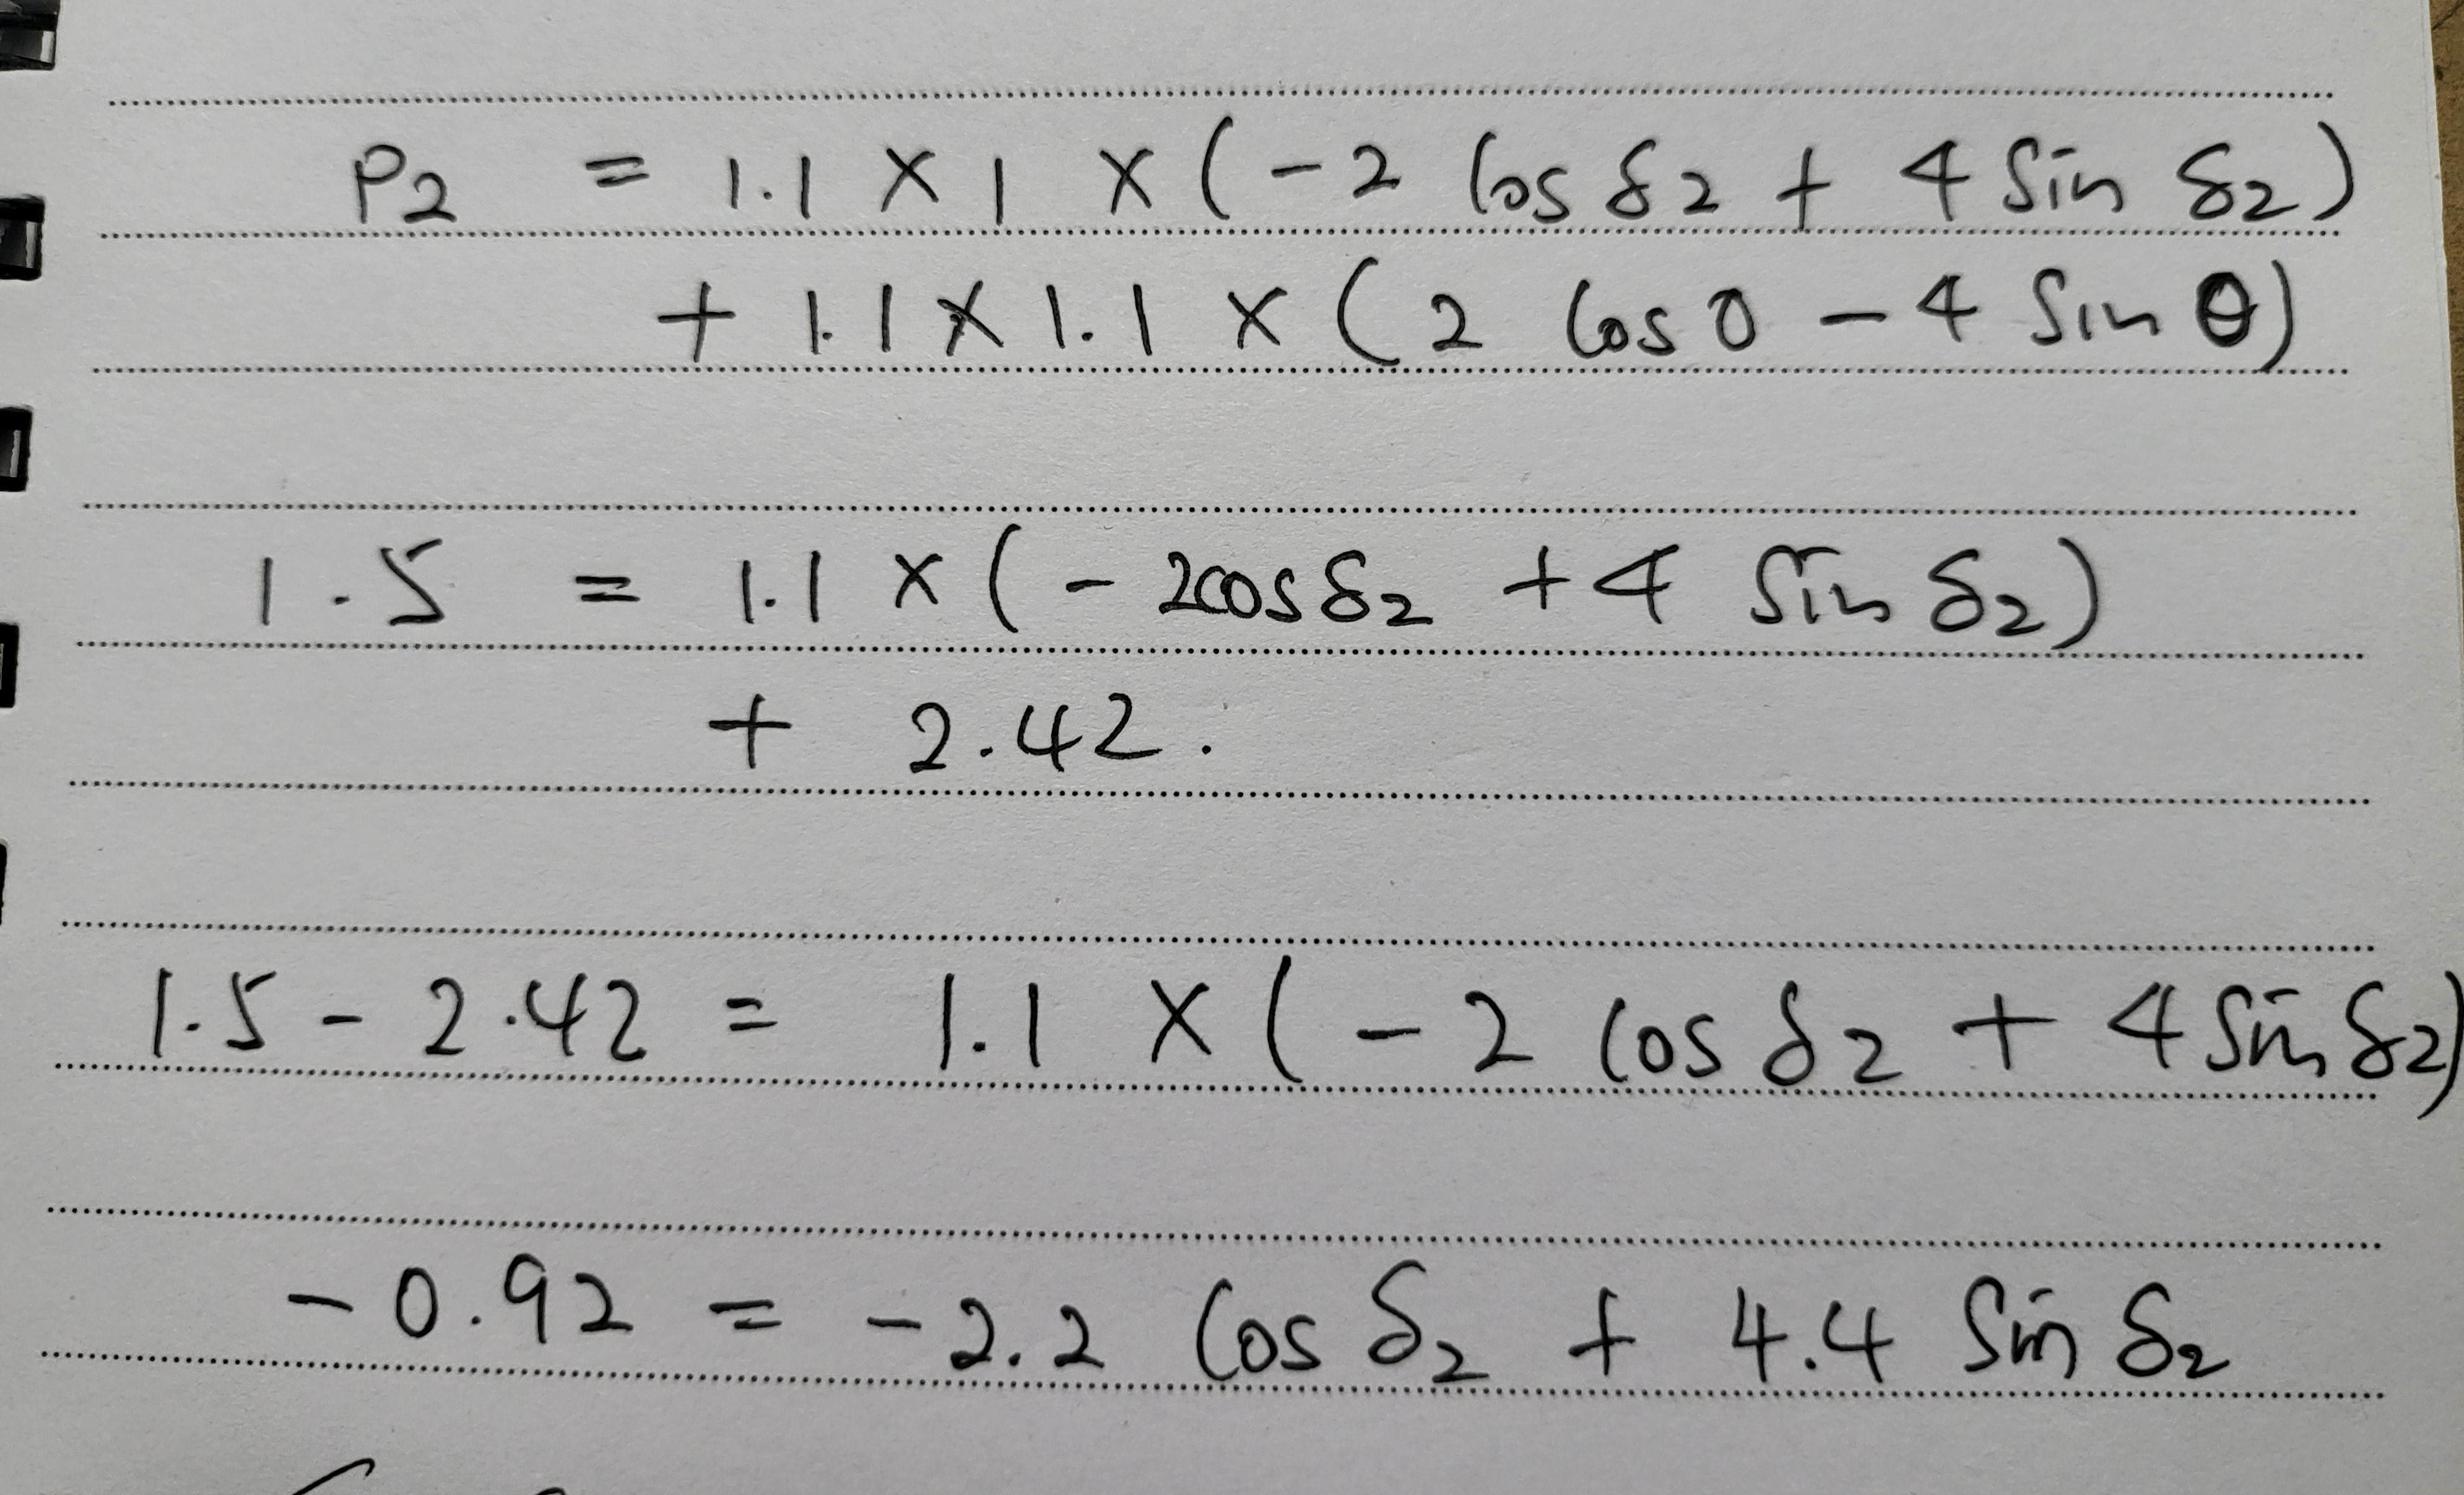 P2 = 1.1 × 1 × (-2 cos δ2 + 4 sin δ2)
+ 1.1 × 1.1 × (2 cos 0 - 4 sin θ)
1.5 = 1.1 × (-2cos δ2 + 4 sin δ2)
+ 2.42.
1.5 - 2.42 = 1.1 × (-2 cos δ2 + 4 sin δ2)
-0.92 = -2.2 cos δ2 + 4.4 sin δ2